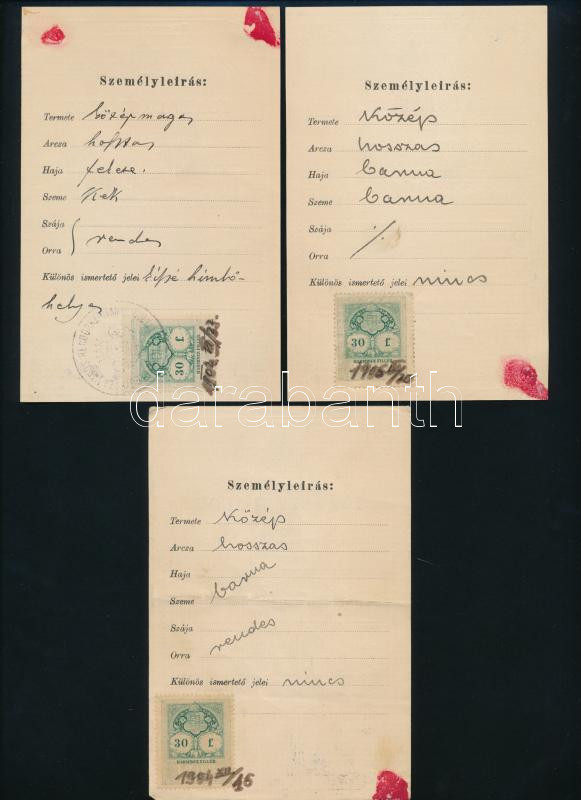 Személyleirás:
Termete középmagas
Arcza hosszas
Haja fekete.
Szeme Kék
Szája
rendes
Orra
Különös ismertető jelei
helyes
30 f.
Személyleirás:
Termete Közép
Arcza hosszas
Haja barna
Szeme barna
Szája
Orra
Különös ismertető jelei nincs
30 f.
HARMINCZ FILLÉR
darabanth
Személyleirás:
Termete Közép
Arcza hosszas
Haja
barna
Szeme
Szája
rendes
Orra
Különös ismertető jelei nincs
30 f.
HARMINCZ FILLÉR
1904 XII/16